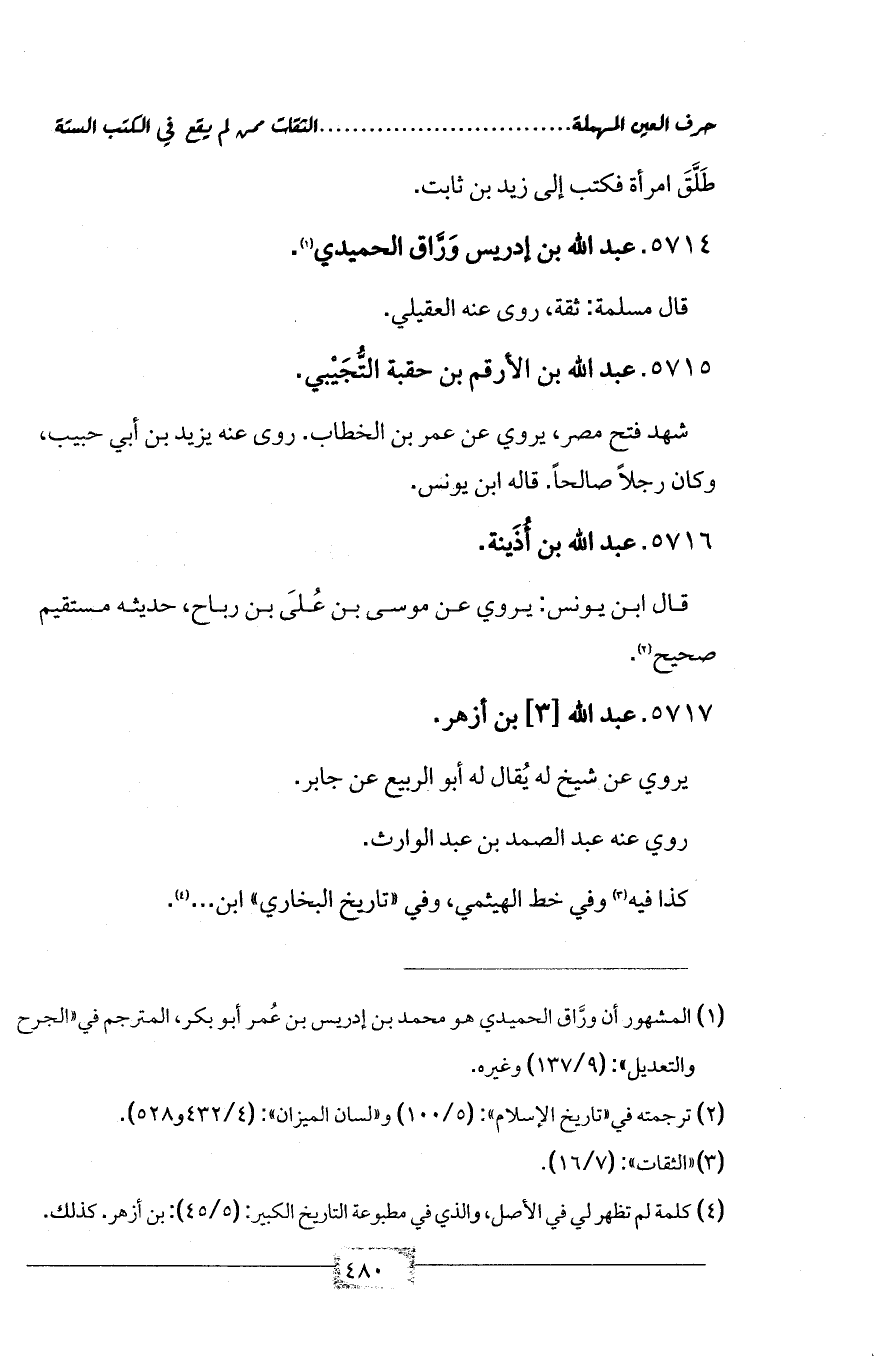 حرف العين المهملة..............................الثقات ممن لم يقع في الكتب الستة
طَلَّقَ امرأة فكتب إلى زيد بن ثابت.
٥٧١٤. عبد الله بن إدريس وَرَّاق الحميدي(١).
قال مسلمة: ثقة، روى عنه العقيلي.
٥٧١٥. عبد الله بن الأرقم بن حقبة التُّجَيْبي.
شهد فتح مصر، يروي عن عمر بن الخطاب. روى عنه يزيد بن أبي حبيب،
وكان رجلاً صالحاً. قاله ابن يونس.
٥٧١٦. عبد الله بن أُذَينة.
قال ابن يونس: يروي عن موسى بن عُلىَ بن رباح، حديثه مستقيم
صحيح(٢).
٥٧١٧. عبد الله [٣] بن أزهر.
يروي عن شيخ له يُقال له أبو الربيع عن جابر.
روي عنه عبد الصمد بن عبد الوارث.
كذا فيه(٣) وفي خط الهيثمي، وفي «تاريخ البخاري» ابن...(٤).
(١) المشهور أن ورَّاق الحميدي هو محمد بن إدريس بن عُمر أبو بكر، المترجم في «الجرح
والتعديل»: (١٣٧/٩) وغيره.
(٢) ترجمته في «تاريخ الإسلام»: (١٠٠/٥) و«لسان الميزان»: (٤٣٢/٤و٥٢٨).
(٣) «الثقات»: (١٦/٧).
(٤) كلمة لم تظهر لي في الأصل، والذي في مطبوعة التاريخ الكبير: (٤٥/٥): بن أزهر. كذلك.
٤٨٠